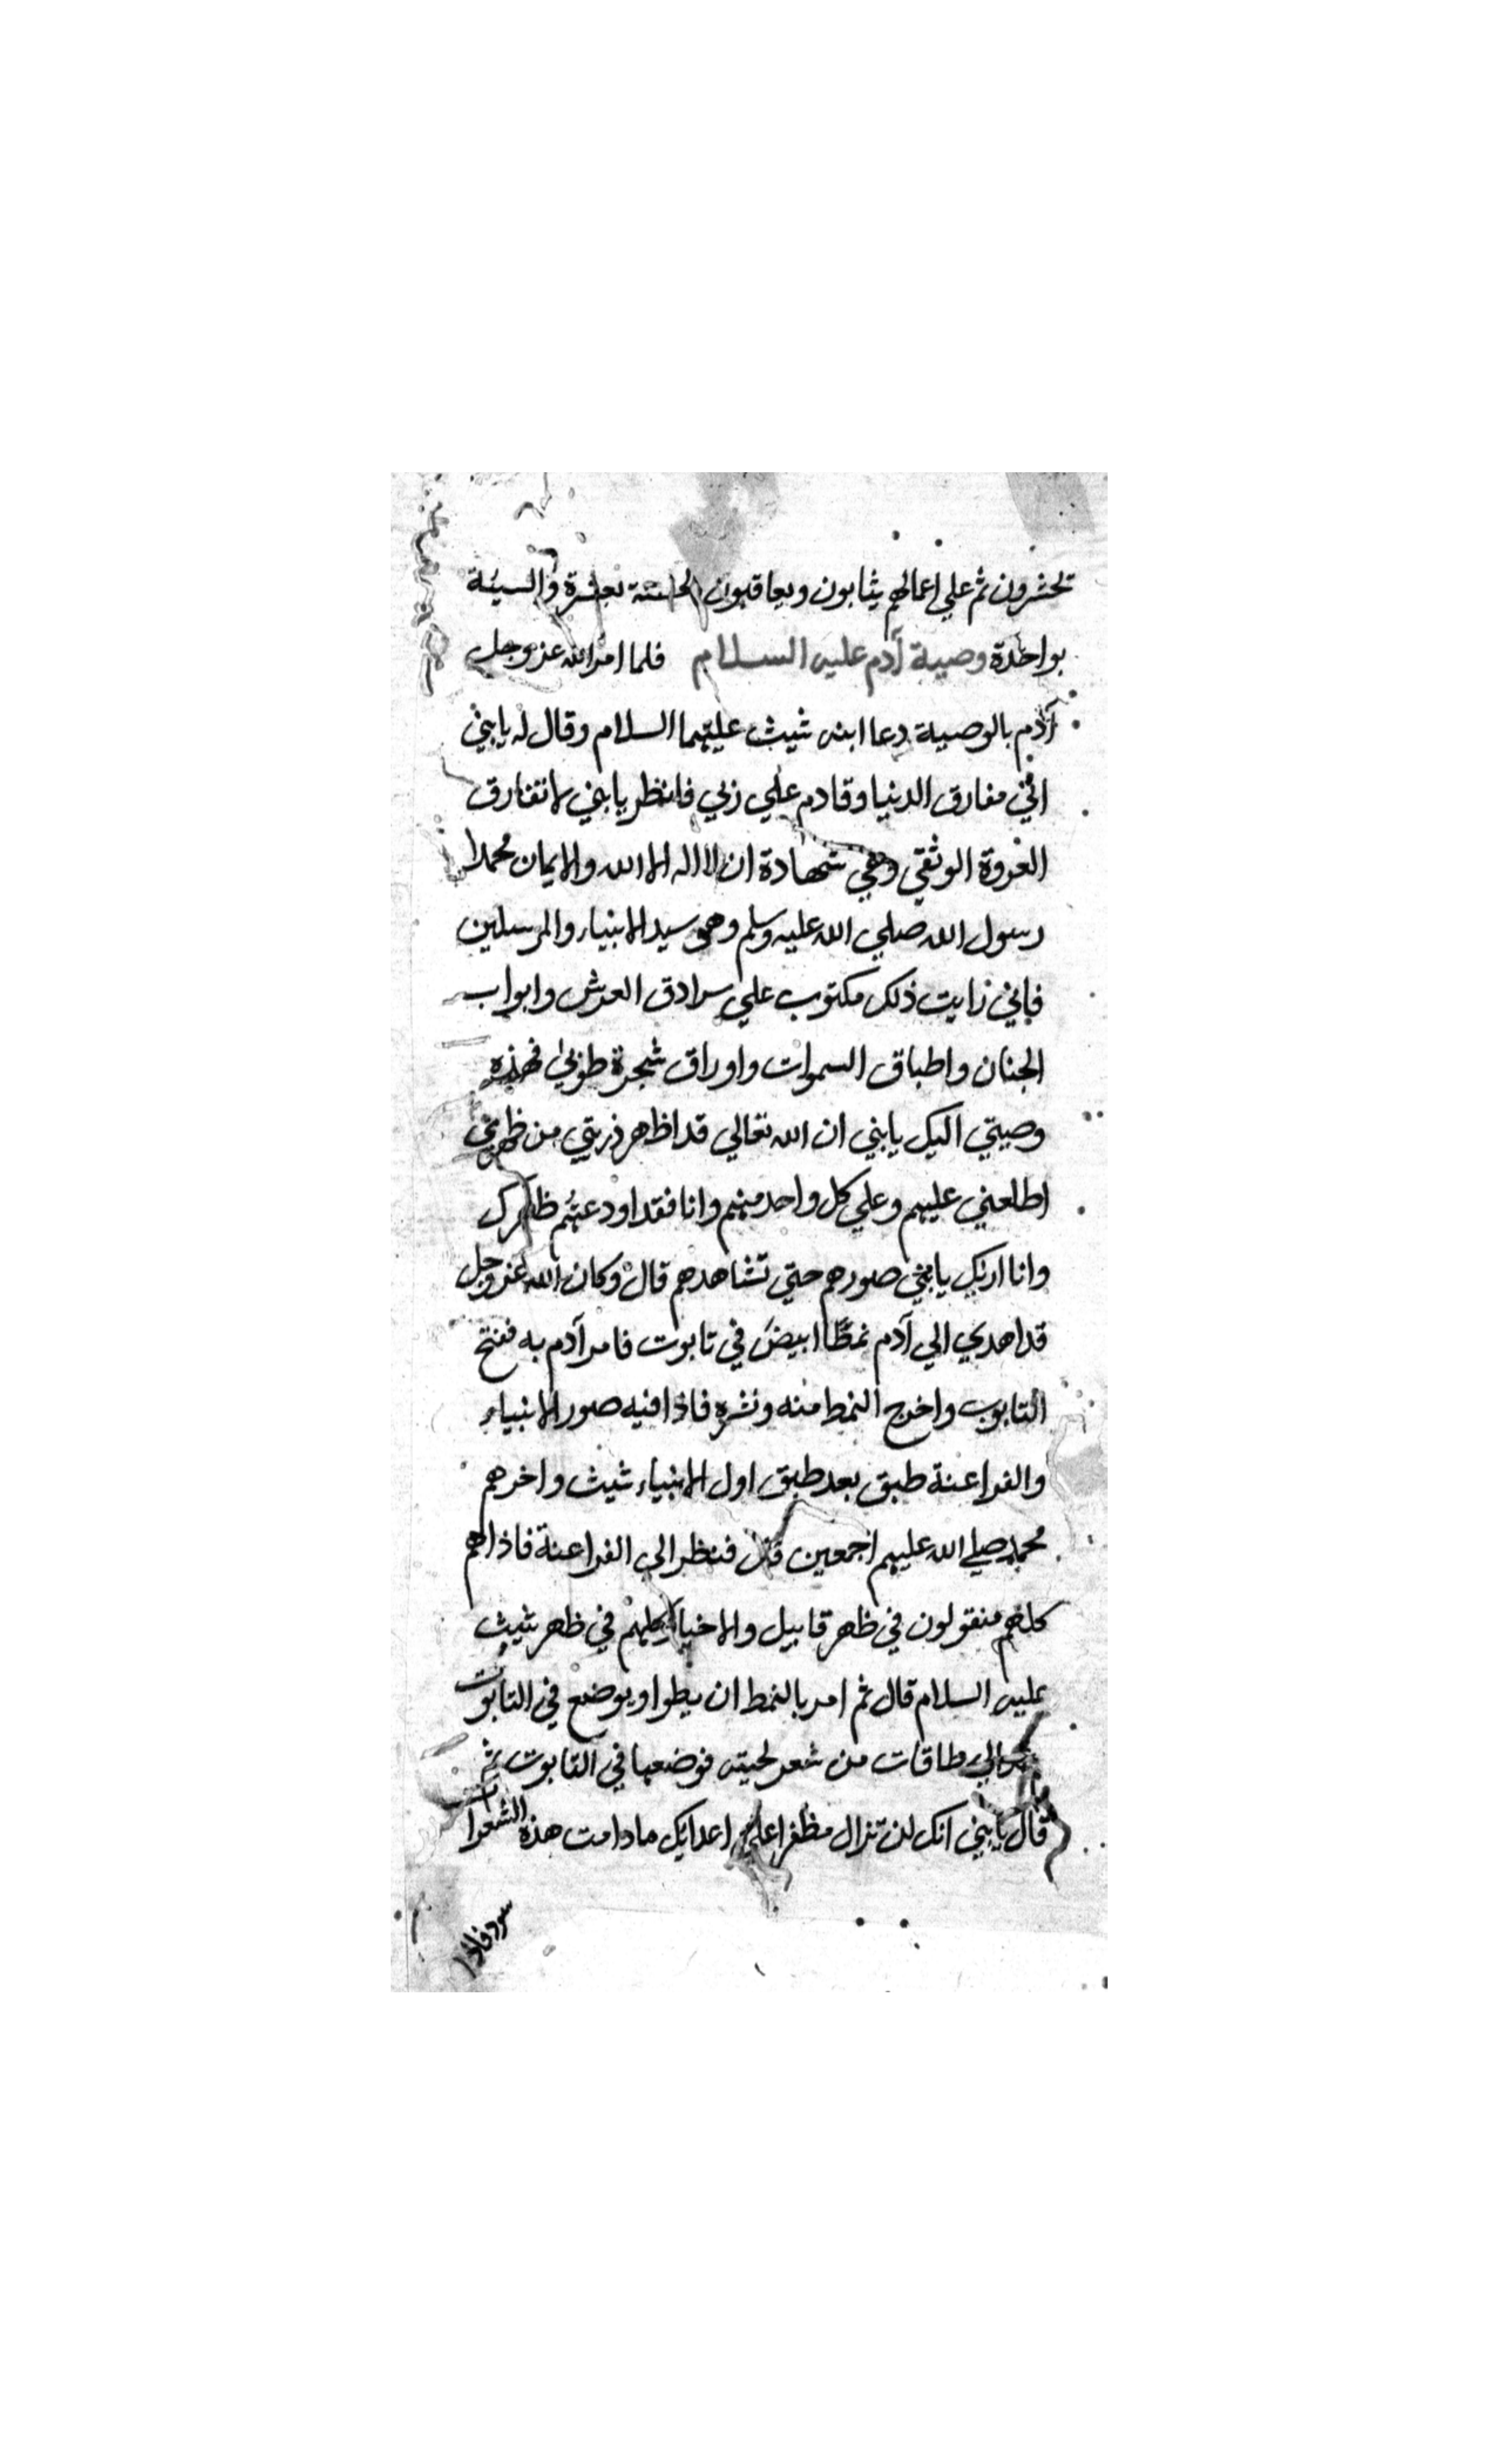 تحشرون ثم علي اعمالهم يثابون ويعاقبون الحسنة بعشرة والسيئة
بواحدة وصية آدم عليه السلام فلما امر الله عز وجل
آدم بالوصية دعا ابنه شيث عليهما السلام وقال له يا بني
اني مفارق الدنيا وقادم علي ربي فانظر يا بني لا تفارق
العروة الوثقي وهي شهادة ان لا اله الا الله والايمان محمدا
رسول الله صلي الله عليه وسلم وهو سيد الانبياء والمرسلين
فاني رايت ذلك مكتوب علي سرادق العرش وابواب
الجنان واطباق السموات واوراق شجرة طوبي فهذه
وصيتي اليك يا بني ان الله تعالي قد اظهر ذريتي من ظهري
اطلعني عليهم وعلي كل واحد منهم وانا فقد اودعتهم ظهرك
وانا اريك يا بني صورهم حتي تشاهدهم قال وكان الله عز وجل
قد اهدي الي آدم نمطا ابيض في تابوت فامر آدم به ففتح
التابوب واخرج النمط منه ونشره فاذا فيه صور الانبياء
والفراعنة طبق بعد طبق اول الانبياء شيث واخرهم
محمد صلي الله عليهم اجمعين قال فنظر الي الفراعنة فاذا هم
كلهم منقولون في ظهر قابيل والاخيار كلهم في ظهر شيث
عليه السلام قال ثم امر بالنمط ان يطوا ويوضع في التابوت
طاقات من شعر لحيته فوضعها في التابوت ثم
قال يا بني انك لن تزال مظفرا علي اعدايك ما دامت هذه الشعرات